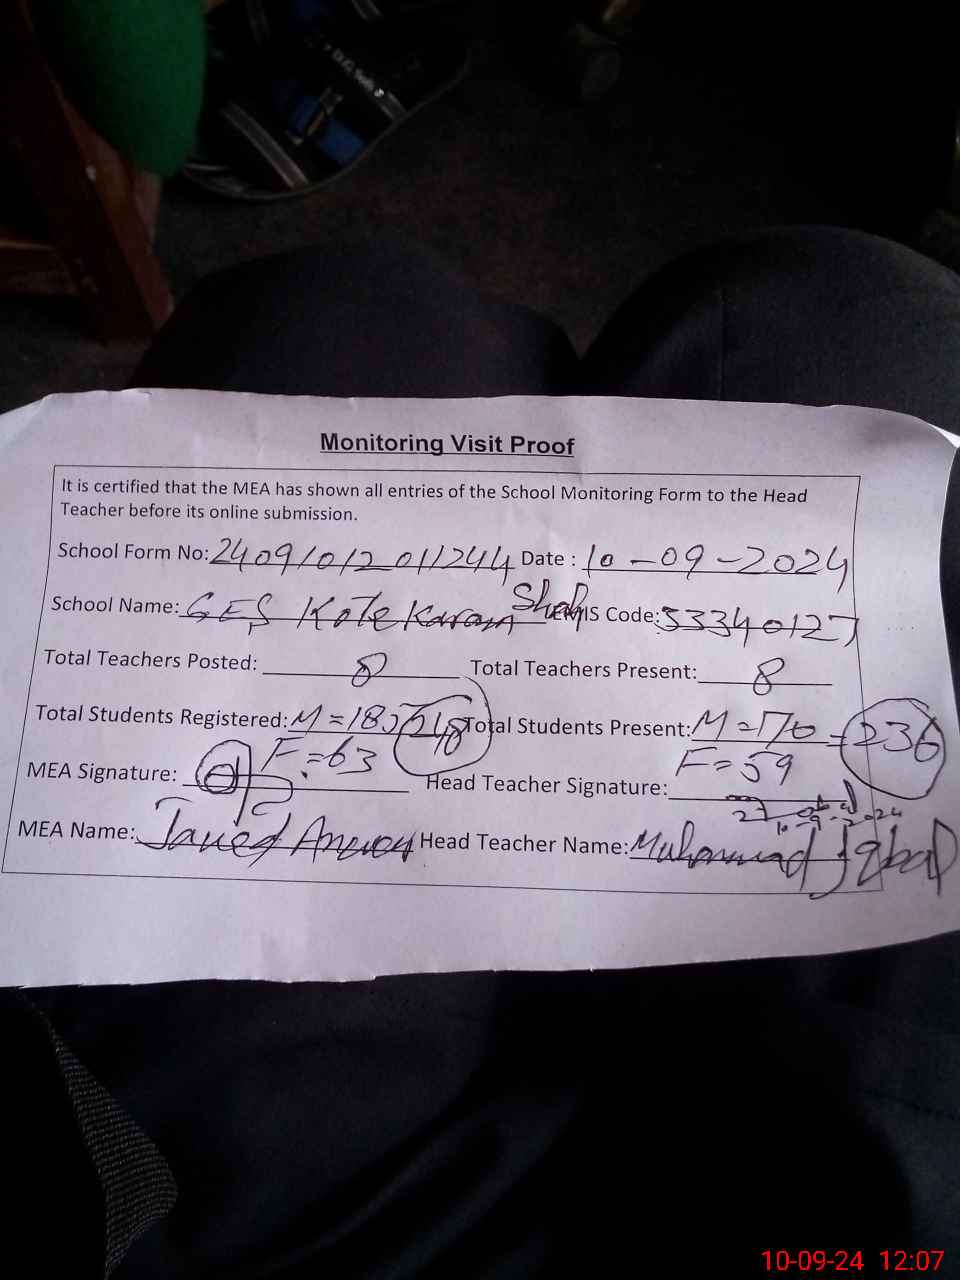 Monitoring Visit Proof
It is certified that the MEA has shown all entries of the School Monitoring Form to the Head
Teacher before its online submission.
School Form No: 24091012011244 Date : 10-09-2024
School Name: GES Kote Karam Shah EMIS Code: 33340127
Total Teachers Posted: 8 Total Teachers Present: 8
Total Students Registered: M=185 248 Total Students Present: M=176 =236
F=63 F=59
MEA Signature: Head Teacher Signature:
10-9-2024
MEA Name: Javed Anwar Head Teacher Name: Muhammad Iqbal
10-09-24 12:07